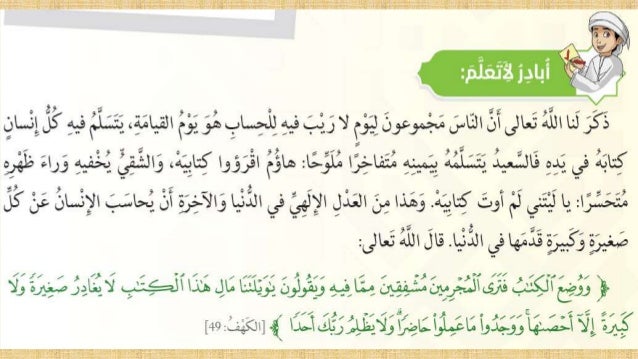 أُبادِرُ لِأَتَعَلَّمَ:
ذَكَرَ لَنا اللَّهُ تَعالى أَنَّ النّاسَ مَجْموعونَ لِيَوْمٍ لا رَيْبَ فيهِ لِلْحِسابِ هُوَ يَوْمُ القيامَةِ، يَتَسَلَّمُ فيهِ كُلُّ إِنْسانٍ
كِتابَهُ في يَدِهِ فَالسَّعيدُ يَتَسَلَّمُهُ بِيَمينِهِ مُتَفاخِرًا مُلَوِّحًا: هاؤُمُ اقْرَؤوا كِتابِيَهْ، وَالشَّقِيُّ يُخْفيهِ وَراءَ ظَهْرِهِ
مُتَحَسِّرًا: يا لَيْتَني لَمْ أوتَ كِتابِيَهْ. وَهَذا مِنَ العَدْلِ الإِلَهِيِّ في الدُّنْيا وَالآخِرَةِ أَنْ يُحاسَبَ الإِنْسانُ عَنْ كُلِّ
صَغيرَةٍ وَكَبيرَةٍ قَدَّمَها في الدُّنْيا. قالَ اللَّهُ تَعالى:
﴿ وَوُضِعَ ٱلْكِتَٰبُ فَتَرَى ٱلْمُجْرِمِينَ مُشْفِقِينَ مِمَّا فِيهِ وَيَقُولُونَ يَٰوَيْلَتَنَا مَالِ هَٰذَا ٱلْكِتَٰبِ لَا يُغَادِرُ صَغِيرَةً وَلَا
كَبِيرَةً إِلَّآ أَحْصَىٰهَا ۚ وَوَجَدُوا۟ مَا عَمِلُوا۟ حَاضِرًا ۗ وَلَا يَظْلِمُ رَبُّكَ أَحَدًا ﴾ [الكَهْفُ: 49]